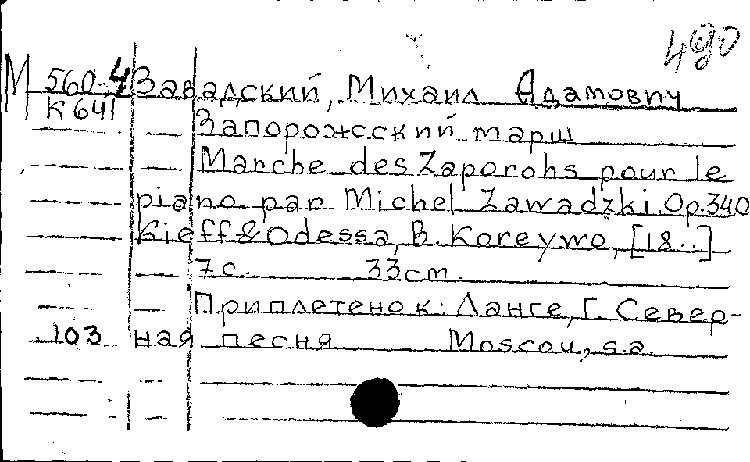 490
М 560-4 Завадский, Михаил Адамович
К 641 Запорожсский марш
Marche des Zaporohs pour le
piano par Michel Zawadzki. Op. 340
Kieff & Odessa, B. Koreywo, [18..]
7 с. 33 cm.
Приплетено к: Ланге, Г. Север-
103 ная песня Moscou, s.a.